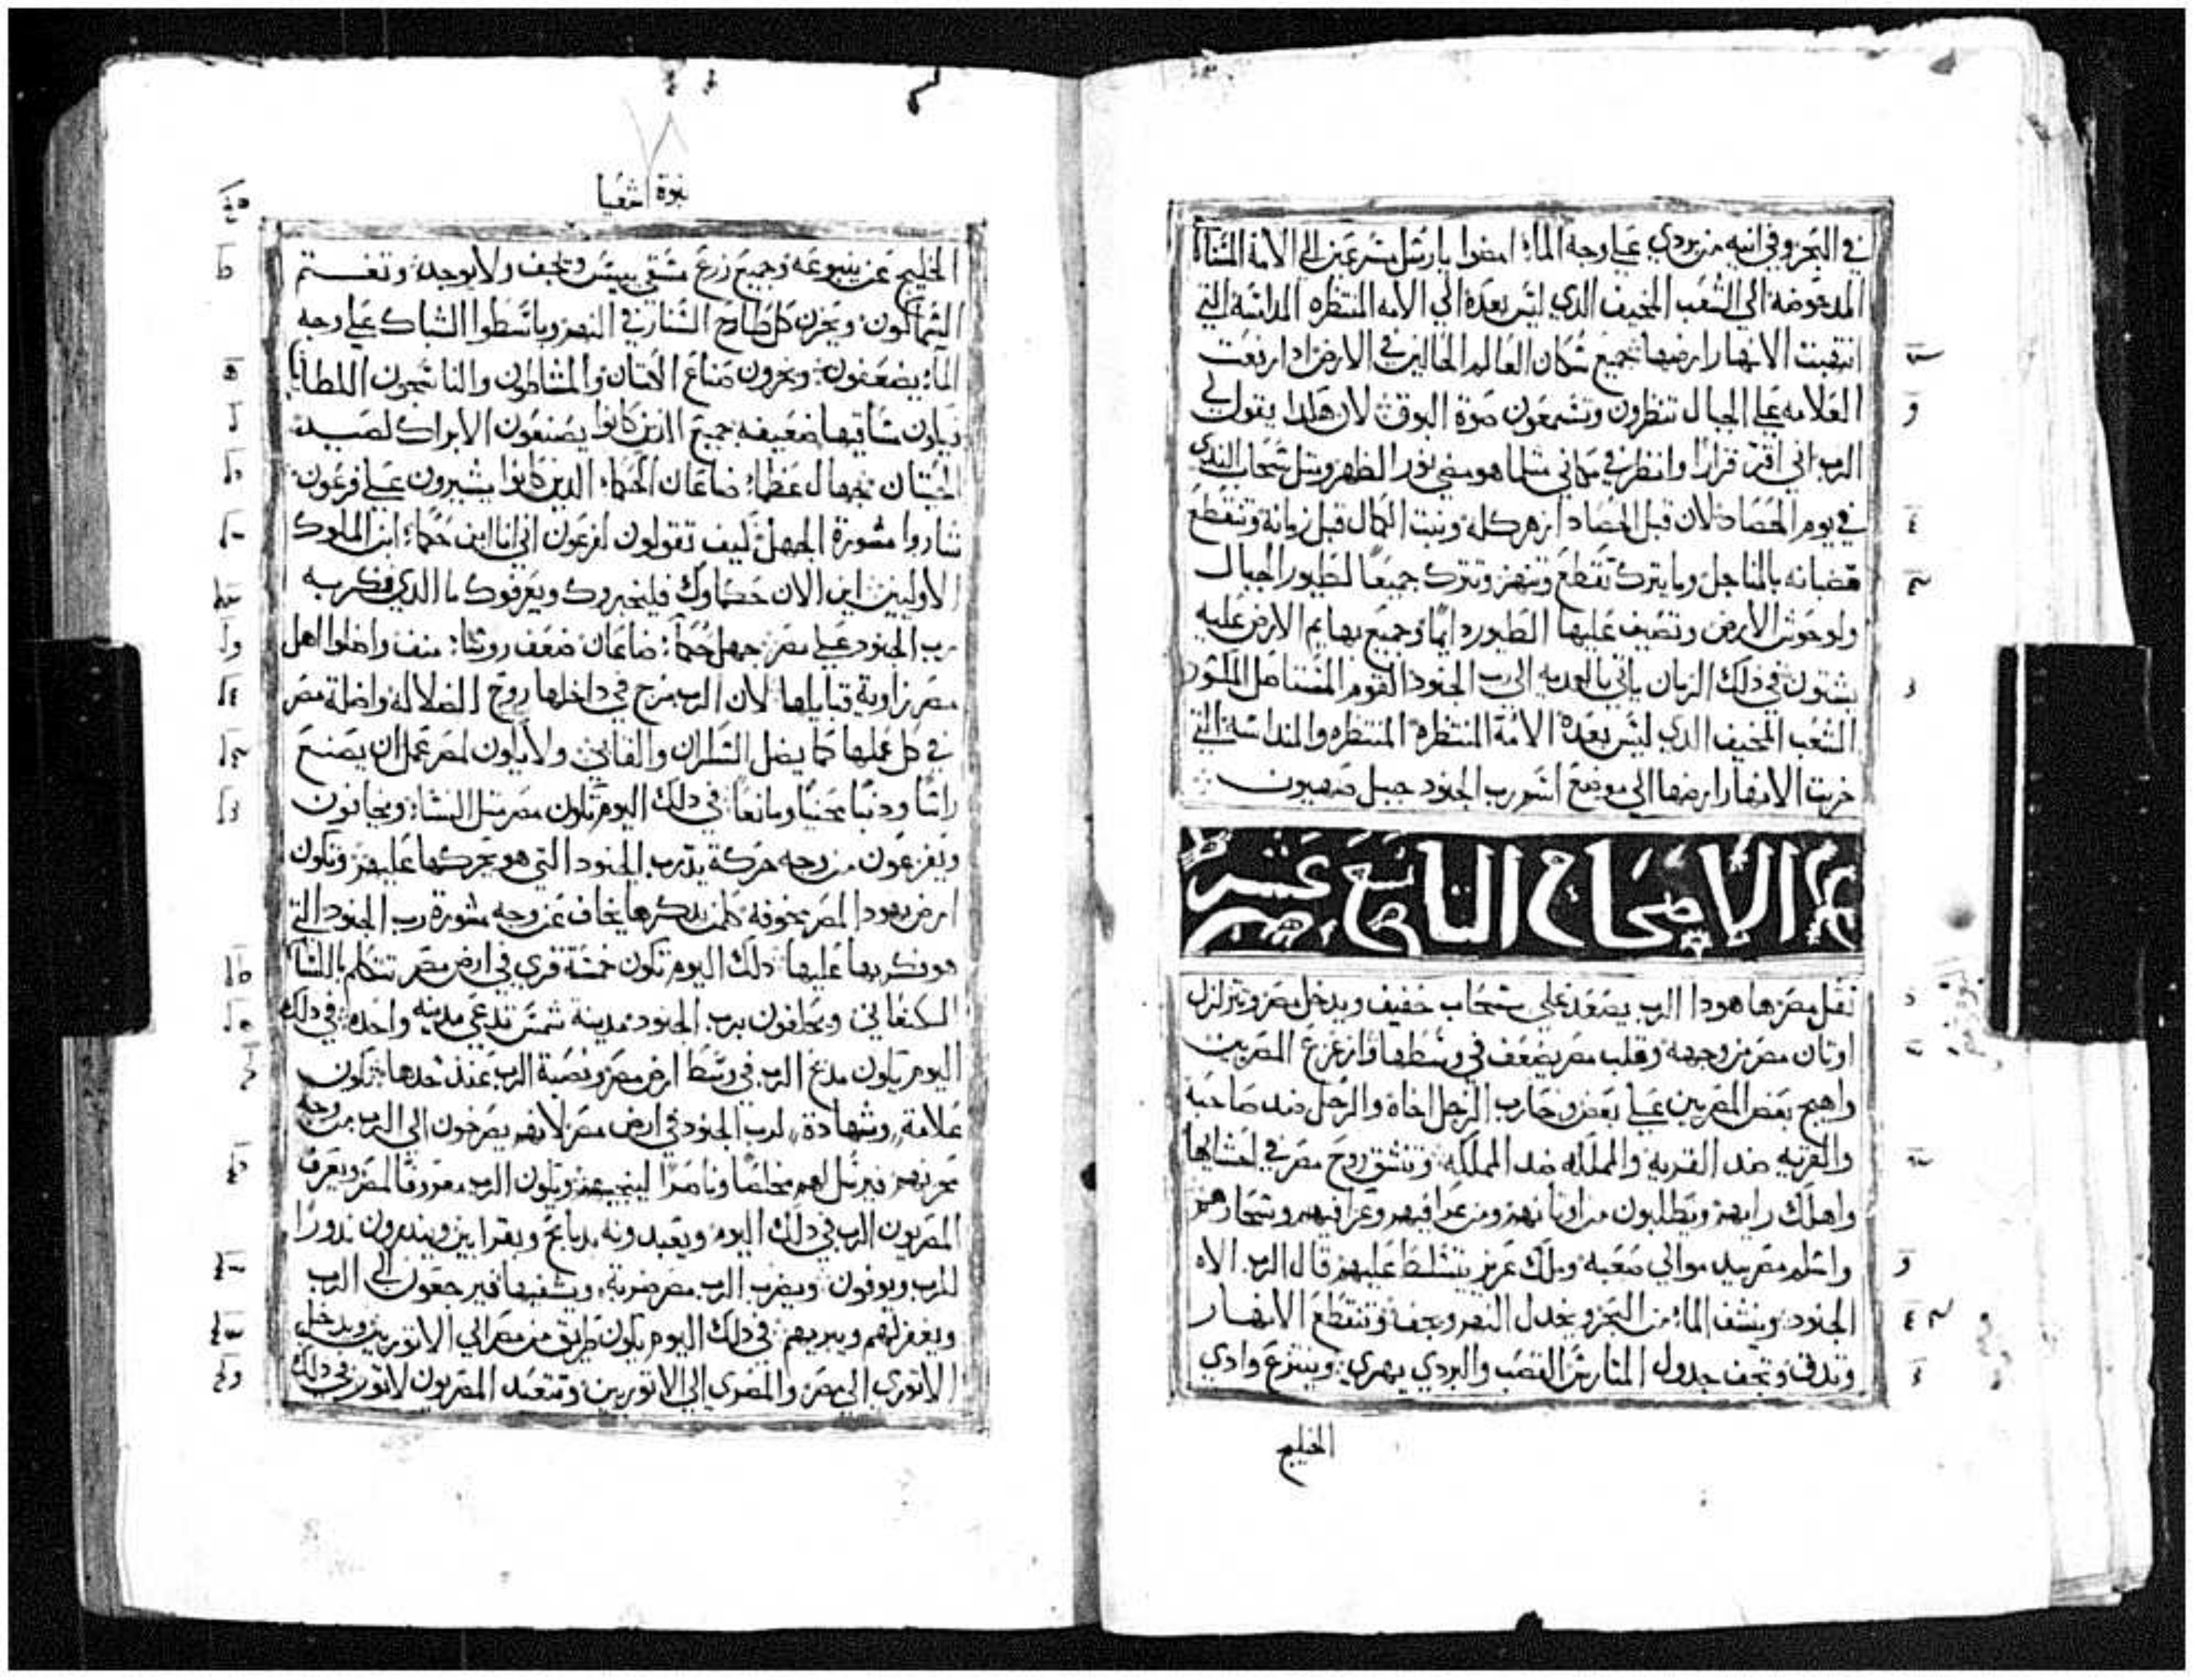 في البحر وفي انيه من بردي علي وجه الماء امضوا يا رسل مسرعين الي الامة
المدحوضة الي الشعب المخيف الذي ليس بعده الي الامه المنتظره المداسة التي
انتهبت الانهار ارضها جميع سكان العالم الحالين في الارض اذا ارتفعت
العلامه علي الجبال تنظرون وتسمعون صوة البوق لان هكدا يقول لي
الرب اني اقر قرارا وانظر في مكاني مثلما هو مضي نور الظهر ومثل سحاب الندي
في يوم الحصاد لان قبل الحصاد ازهر كله ونبت الكمال قبل زمانه وتنقطع
قضبانه بالمناجل وما يترك تقطع وتنهز وتترك جميعا لطيور الجبال
ولوحوش الارض وتصيف عليها الطيور دايما وجميع بهايم الارض عليه
يشتون في دلك الزمان ياتي بالهديه الي رب الجنود القوم المستاصل
الشعب المخيف الدي ليس بعده الامة المنتظرة المنتظره والمنداسة التي
خربت الانهار ارضها الي موضع اسم رب الجنود جبل صهيون
الاصحاح التاسع عشر
ثقل مصر ها هودا الرب يصعد علي سحاب خفيف ويدخل مصر وتتزلزل
اوتان مصر من وجهه وقلب مصر يضعف في وسطها وازعزع المصريين
واهيج بعض المصريين علي بعض ويحارب الرجل اخاه والرجل ضد صاحبه
والقريه ضد القرية والمملكه ضد المملكه وتنشق روح مصر في احشايها
واهلك رايهم ويطلبون من اوتانهم ومن عرافيهم وسحارهم
واسلم مصر بيد موالي صعبه وملك عزيز يتسلط عليهم قال الرب الاه
الجنود وينشف الماء من البحر ويخدل النهر ويجف وتنقطع الانهار
وتدق وتجف جدول المتارس القصب والبردي يهري وينتزع وادي
الخليج
نبوة اشعيا
الخليج عن ينبوعه وجميع زرع سقي ييبس ويجف ولا يوجد وتغتم
السماكون ويحزن كل طارح السنار في النهر وباسطوا الشباك علي وجه
الماء يضعفون ويخزون صناع الكتان والمشاطون والناسجون
ويكون ساقيها ضعيفه جميع الذين كانوا يصنعون الابراك لصيد
الحيتان جهال عظماء صاعان الحكماء الدين كانوا يشيرون علي فرعون
مشورة الجهل كيف تقولون لفرعون اني انا ابن حكماء ابن الملوك
الاولين اين الان حكماوك فليخبروك ويعرفوك ما الدي فكر به
رب الجنود علي مصر جهل حكماء صاعان ضعف روسا منف واضلوا اهل
مصر زاوية قبايلها لان الرب مزج في داخلها روح الضلالة واضلة مصر
في كل عملها كما يضل السكران والقايئ ولا يكون لمصر عمل ان يصنع
راسا ودنبا محنيا ومانعا في دلك اليوم تكون مصر مثل النساء ويخافون
ويفزعون من وجه حركة يد رب الجنود التي هو يحركها عليهم وتكون
ارض يهودا لمصر مخوفة كلمن يدكرها يخاف من وجه مشورة رب الجنود التي
هو فكر بها عليها دلك اليوم تكون خمسة قري في ارض مصر تتكلم باللسان
الكنعاني ويحلفون برب الجنود مدينة شمس تدعي مدينه واحده في دلك
اليوم يكون مدبح الرب في وسط ارض مصر ونصبة الرب عند حدها تكون
علامة وشهادة لرب الجنود في ارض مصر لانهم يصرخون الي الرب من وجه
محزنهم فيرسل لهم مخلصا وناصرا لينجيهم ويكون الرب معروفا لمصر ويعرف
المصريون الرب في دلك اليوم ويعبدونه بدبايح وبقرابين وينذرون ندورا
للرب ويوفون ويضرب الرب مصر ضربة ويشفيها فيرجعون الي الرب
ويغفر لهم ويبريهم في دلك اليوم يكون طريق من مصر الي الاتوريين ويدخل
الاتوري الي مصر والمصري الي الاتوريين وتتعبد المصريون لاتور في دلك